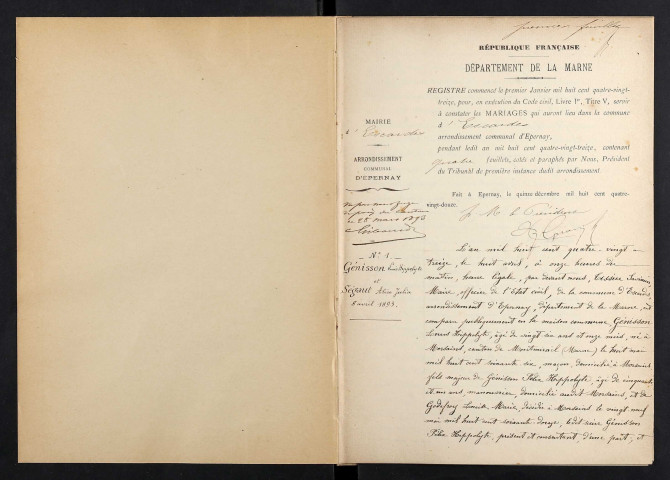 premier feuillet
RÉPUBLIQUE FRANÇAISE
DÉPARTEMENT DE LA MARNE
REGISTRE commencé le premier Janvier mil huit cent quatre-vingt-
treize, pour, en exécution du Code civil, Livre Iᵉʳ, Titre V, servir
à constater les MARIAGES qui auront lieu dans la commune
d'Escardes
arrondissement communal d'Epernay,
pendant ledit an mil huit cent quatre-vingt-treize, contenant
quatre feuillets, cotés et paraphés par Nous, Président
du Tribunal de première instance dudit arrondissement
Fait à Epernay, le quinze décembre mil huit cent quatre-
vingt-douze.
MAIRIE
d'Escardes
ARRONDISSEMENT
COMMUNAL
D'EPERNAY
le 28 mars 1893
N° 1
Génisson Louis Hippolyte
et
Segaut Julia
8 avril 1893.
L'an mil huit cent quatre-vingt-
treize, le huit avril, à onze heures du
matin, heure légale, par devant nous,
Maire, officier de l'Etat civil, de la commune d'Escardes,
arrondissement d'Epernay, département de la Marne, ont
comparu publiquement en la maison commune, Génisson
Louis Hippolyte, âgé de vingt six ans et onze mois, né à
Morsains, canton de Montmirail (Marne) le huit mai
mil huit cent soixante six, maçon, domicilié à Morsains
fils majeur de Génisson Félix Hippolyte, âgé de cinquante
et un ans, manouvrier, domicilié audit Morsains, et de
Godefroy Marie, décédée à Morsains le vingt neuf
mai mil huit cent soixante-douze, ledit sieur Génisson
Félix Hippolyte, présent et consentant, d'une part; et